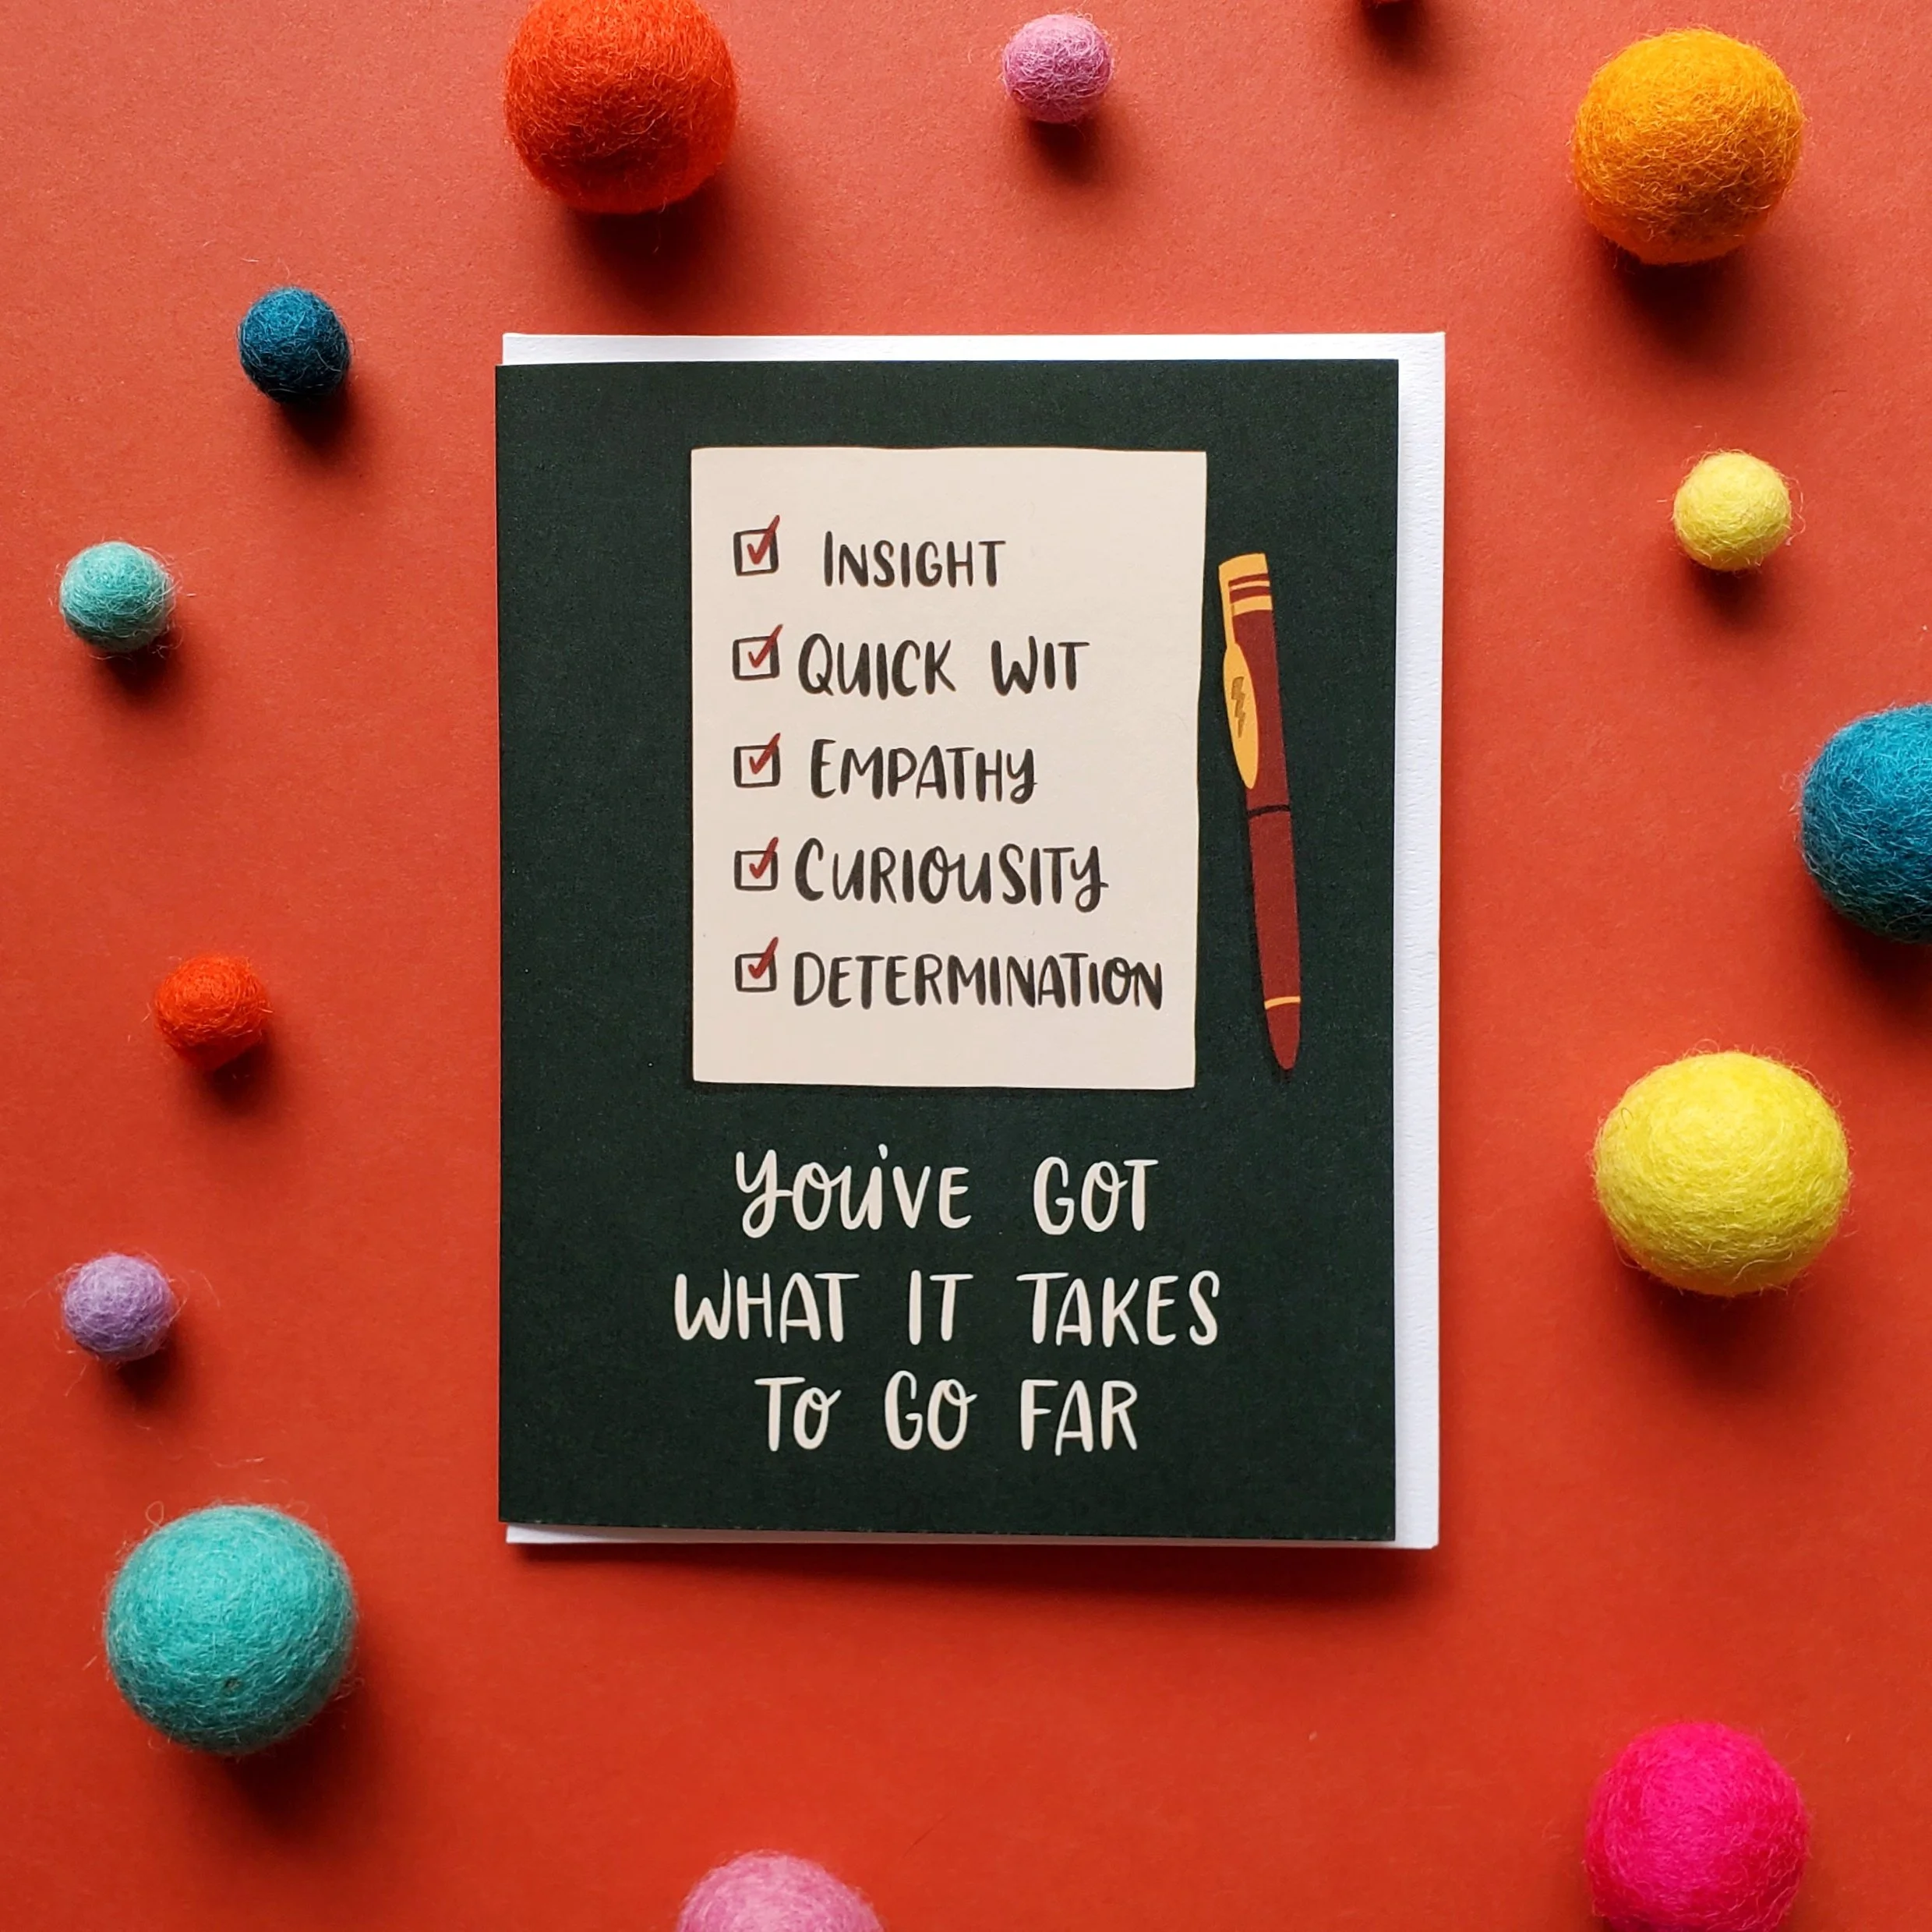 INSIGHT
QUICK WIT
EMPATHY
CURIOUSITY
DETERMINATION
YOU'VE GOT
WHAT IT TAKES
TO GO FAR